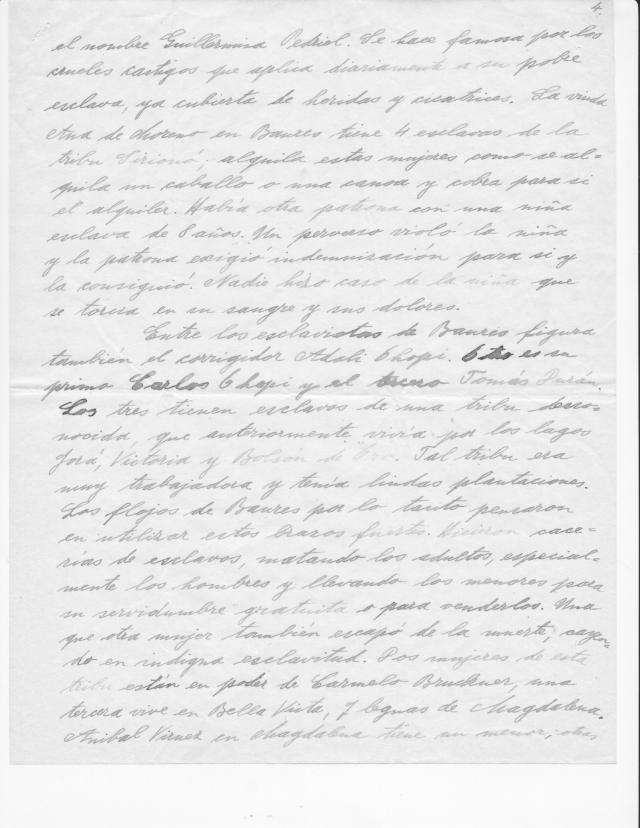 4.
el nombre Guillermina Pedriel. Se hace famosa por los
crueles castigos que aplica diariamente a su pobre
esclava, ya cubierta de heridas y cicatrices. La viuda
Ana de Moreno en Baures tiene 4 esclavas de la
tribu Sirionó: alquila estas mujeres como se al-
quila un caballo o una canoa y cobra para si
el alquiler. Había otra patrona con una niña
esclava de 8 años. Un perverso violó la niña
y la patrona exigió indemnización para si y
la consiguió. Nadie hizo caso de la niña que
se torcia en su sangre y sus dolores.
Entre los esclavistas de Baures figura
también el corrigidor Adali Chopi. Otro es su
primo Carlos Chopi y el tercero Tomás Durán.
Los tres tienen esclavos de una tribu desco-
nocida, que anteriormente vivía por los lagos
Jorá, Victoria y Bolsón de Oro. Tal tribu era
muy trabajadora y tenía lindas plantaciones.
Los flojos de Baures por lo tanto pensaron
en utilizar estos brazos fuerte. Hicieron case-
rías de esclavos, matando los adultos, especial-
mente los hombres y llevando los menores para
su servidumbre gratuita o para venderlos. Una
que otra mujer también escapó de la muerte, cayen-
do en indigna esclavitud. Dos mujeres de esta
tribu están en poder de Carmelo Bruckner, una
tercera vive en Bella Vista, 7 leguas de Magdalena.
Anibal Virnez en Magdalena tiene un menor, otras